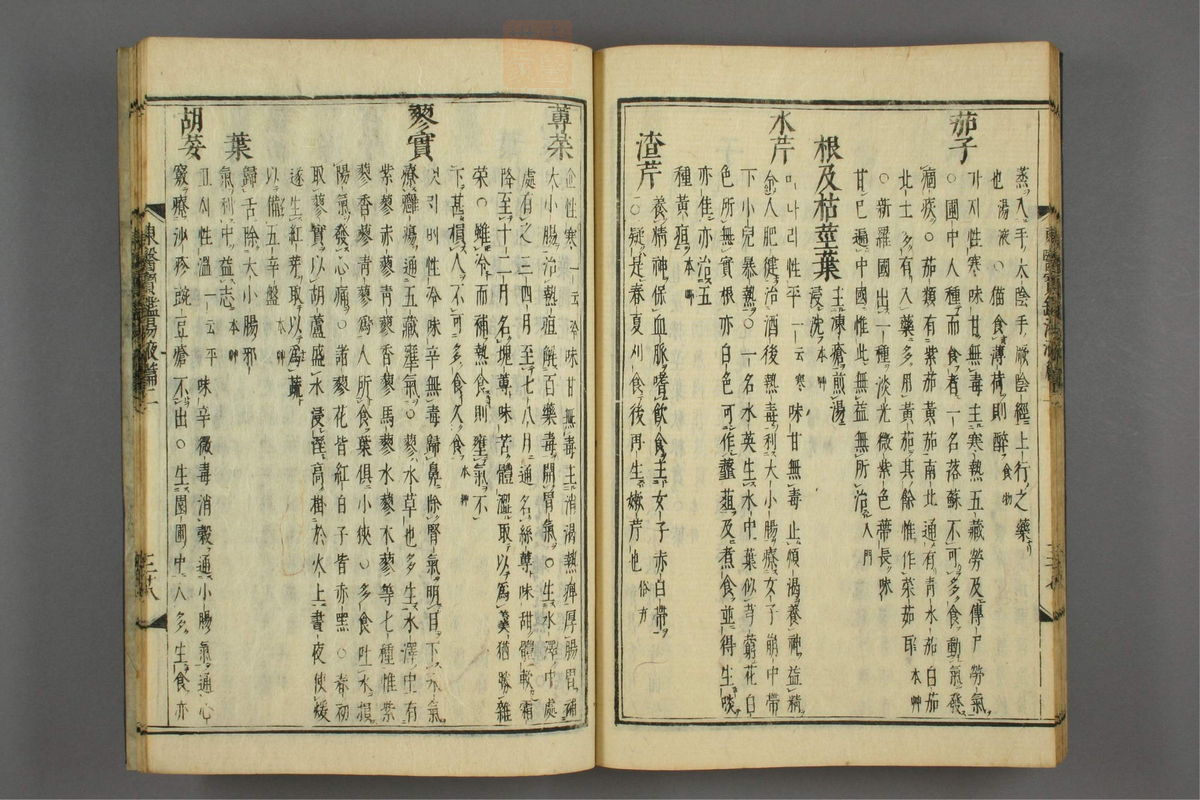 蒸入手太陰手厥陰經上行之藥
也湯液○猫食薄荷則醉食物
茄子
가지性寒味甘無毒主寒熱五藏勞及傳尸勞氣
○圃中人種而食者一名落蘇不可多食動氣發
痼疾○茄類有紫茄黃茄南北通有青水茄白茄
北土多有入藥多用黃茄其餘惟作菜茄耳本草
○新羅國出一種淡光微紫色蒂長味
甘已遍中國惟此無益無所治入門
根及枯莖葉
主凍瘡煎湯
浸洗本草
水芹
미나리性平一云寒味甘無毒止煩渴養神益精
令人肥健治酒後熱毒利大小腸療女子崩中帶
下小兒暴熱○一名水英生水中葉似芎藭花白
色所無實根亦白色可作虀葅及煮食並得生啖
亦佳亦治五
種黃疸本草
渣芹
養精神保血脈嗜飲食主女子赤白帶下
○疑是春夏刈食後再生嫩芹也俗方
東醫寶鑑湯液篇二
蓴菜
性寒一云冷味甘無毒主消渴熱痺厚腸胃補
大小腸治熱疸解百藥毒開胃氣○生水澤中處
處有之三四月至七八月通名絲蓴味甜體軟霜
降至十二月名塊蓴味苦體澁取以爲羹猶勝雜
菜○雖冷而補熱食則壅氣不
下甚損人不可多食久食本草
蓼實
엿귀씨性冷味辛無毒歸鼻除腎氣明目下水氣
療癰瘍通五藏壅氣○蓼水草也多生水澤中有
紫蓼赤蓼靑蓼香蓼馬蓼水蓼木蓼等七種惟紫
蓼香蓼靑蓼爲人所食葉俱小狹○多食吐水損
陽氣發心痛○諸蓼花皆紅白子皆赤黑○春初
取蓼實以胡蘆盛水浸濕高掛於火上晝夜使煖
遂生紅芽取以爲蔬
以備五辛盤本草
葉
歸舌除大小腸邪
氣利中益志本草
胡荽
고싀性溫一云平味辛微毒消穀通小腸氣通心
竅療沙疹豌豆瘡不出○生園圃中人多生食亦
東醫寶鑑湯液篇二